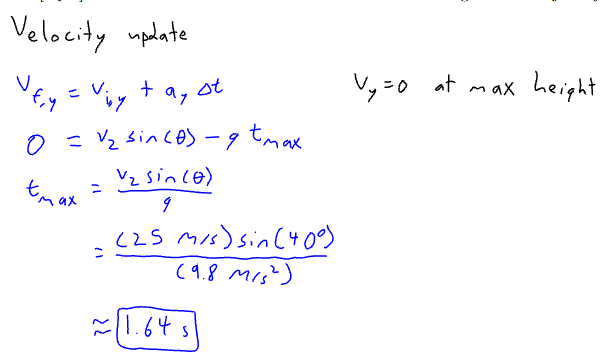 Velocity update
V_f,y = V_i,y + a_y Δt
V_y = 0 at max height
0 = V_2 sin(θ) - g t_max
t_max = V_2 sin(θ) / g
= (25 m/s) sin(40°) / (9.8 m/s²)
≈ 1.64 s